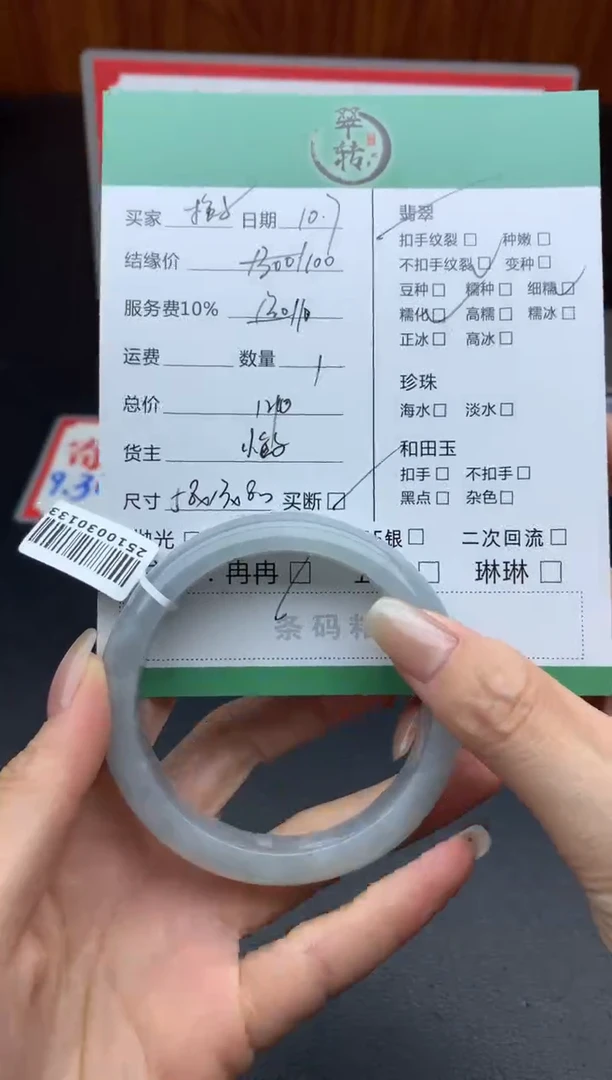 翠
转
买家 日期 10.7
结缘价 1300/1100
服务费10% 130/110
运费 数量 1
总价 1210
货主
尺寸 58x13x8 买断
翡翠
扣手纹裂 种嫩
不扣手纹裂 变种
豆种 糯种 细糯
糯化 高糯 糯冰
正冰 高冰
珍珠
海水 淡水
和田玉
扣手 不扣手
黑点 杂色
抛光 银 二次回流
冉冉 琳琳
条码粘
2510030133
9.3